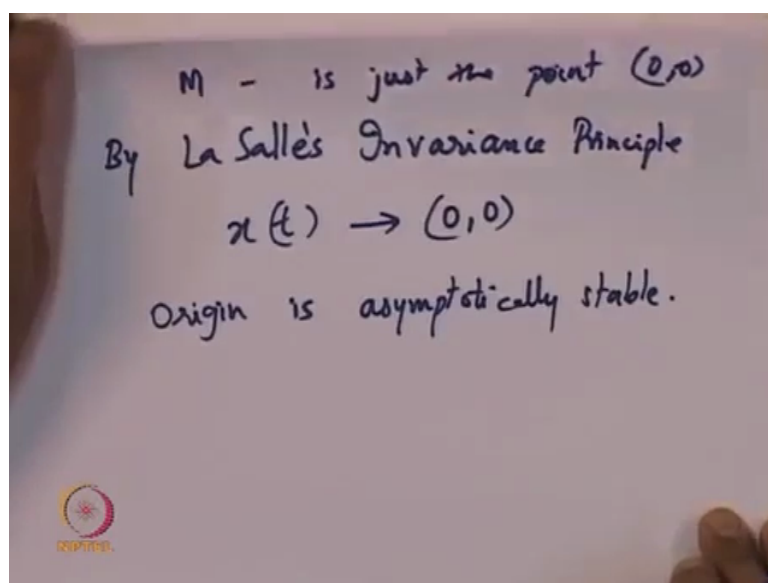 M - is just the point (0,0)
By La Salle's Invariance Principle
x(t) → (0,0)
Origin is asymptotically stable.
NPTEL